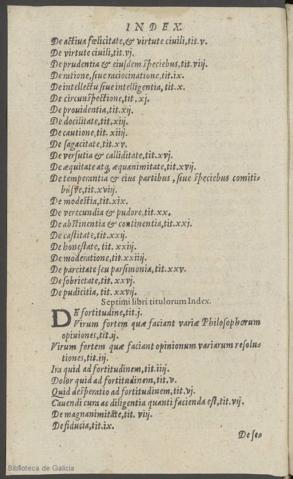 INDEX.
De actiua fœlicitate, & virtute ciuili, tit. v.
De virtute ciuili, tit. vj.
De prudentia & eiusdem speciebus, tit. viij.
De ratione, siue raciocinatione, tit. ix.
De intellectu siue intelligentia, tit. x.
De circunspectione, tit. xj.
De prouidentia, tit. xij.
De docilitate, tit. xiij.
De cautione, tit. xiiij.
De sagacitate, tit. xv.
De versutia & calliditate, tit. xvj.
De æquitate atq; æquanimitate, tit. xvij.
De temperantia & eius partibus, siue speciebus comiti-
busve, tit. xviij.
De modestia, tit. xix.
De verecundia & pudore, tit. xx.
De abstinentia & continentia, tit. xxj.
De castitate, tit. xxij.
De honestate, tit. xxiij.
De moderatione, tit. xxiiij.
De parcitate seu parsimonia, tit. xxv.
De sobrietate, tit. xxvj.
De pudicitia, tit. xxvij.
Septimi libri titulorum Index.
DE fortitudine, tit. j.
Virum fortem quæ faciant variæ Philosophorum
opiniones, tit. ij.
Virum fortem quæ faciant opinionum variarum resolu-
tiones, tit. iij.
Ira quid ad fortitudinem, tit. iiij.
Dolor quid ad fortitudinem, tit. v.
Quid desperatio ad fortitudinem, tit. vj.
Cauendi cura ac diligentia quanti facienda est, tit. vij.
De magnanimitate, tit. viij.
De fiducia, tit. ix.
De se-
Biblioteca de Galicia